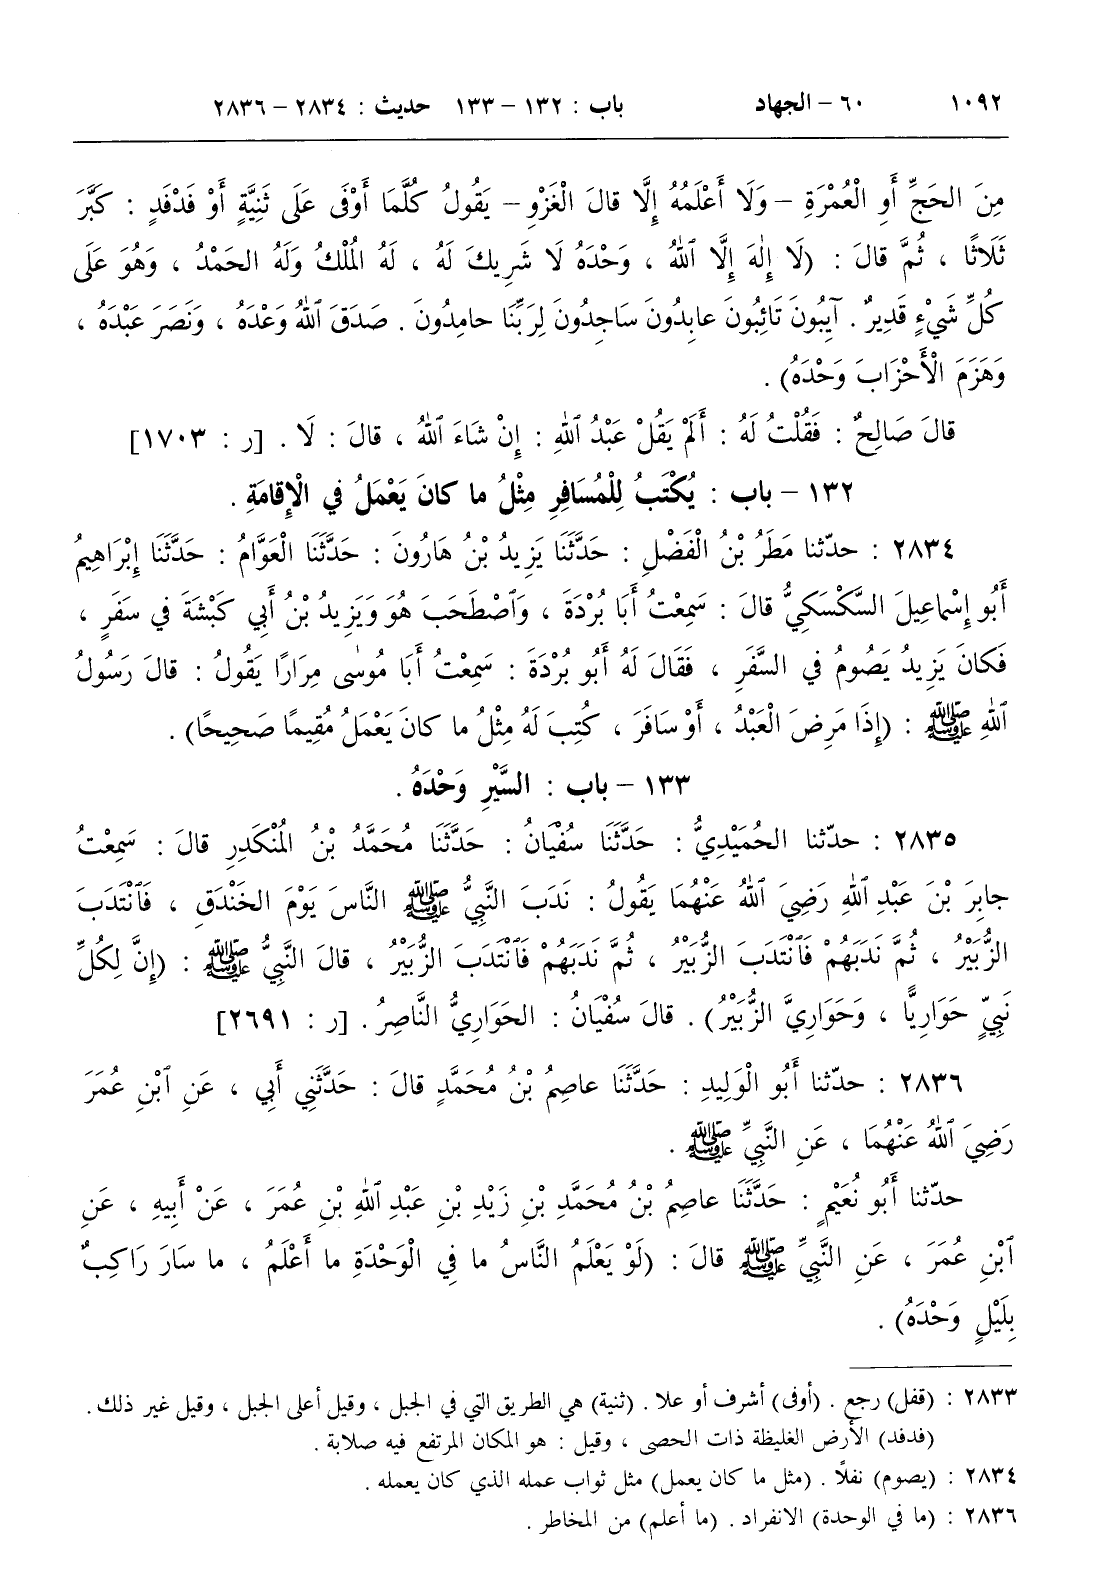 ١٠٩٢ ٦٠ – الجهاد باب : ١٣٢ – ١٣٣ حديث : ٢٨٣٤ – ٢٨٣٦
مِنَ الحَجِّ أَوِ الْعُمْرَةِ – وَلَا أَعْلَمُهُ إِلَّا قالَ الْغَزْوِ – يَقُولُ كُلَّمَا أَوْفَى عَلَى ثَنِيَّةٍ أَوْ فَدْفَدٍ : كَبَّرَ
ثَلَاثًا ، ثُمَّ قالَ : (لَا إِلٰهَ إِلَّا ٱللهُ ، وَحْدَهُ لَا شَرِيكَ لَهُ ، لَهُ المُلْكُ وَلَهُ الحَمْدُ ، وَهُوَ عَلَى
كُلِّ شَيْءٍ قَدِيرٌ . آيِبُونَ تَائِبُونَ عابِدُونَ سَاجِدُونَ لِرَبِّنَا حامِدُونَ . صَدَقَ ٱللهُ وَعْدَهُ ، وَنَصَرَ عَبْدَهُ ،
وَهَزَمَ الْأَحْزَابَ وَحْدَهُ) .
قالَ صَالِحٌ : فَقُلْتُ لَهُ : أَلَمْ يَقُلْ عَبْدُ ٱللهِ : إِنْ شَاءَ ٱللهُ ، قالَ : لَا . [ر : ١٧٠٣]
١٣٢ – باب : يُكْتَبُ لِلْمُسَافِرِ مِثْلُ ما كانَ يَعْمَلُ في الْإِقامَةِ .
٢٨٣٤ : حدّثنا مَطَرُ بْنُ الْفَضْلِ : حَدَّثَنَا يَزِيدُ بْنُ هَارُونَ : حَدَّثَنَا الْعَوَّامُ : حَدَّثَنَا إِبْرَاهِيمُ
أَبُو إِسْماعِيلَ السَّكْسَكِيُّ قالَ : سَمِعْتُ أَبَا بُرْدَةَ ، وَٱصْطَحَبَ هُوَ وَيَزِيدُ بْنُ أَبِي كَبْشَةَ في سَفَرٍ ،
فَكانَ يَزِيدُ يَصُومُ في السَّفَرِ ، فَقَالَ لَهُ أَبُو بُرْدَةَ : سَمِعْتُ أَبَا مُوسٰى مِرَارًا يَقُولُ : قالَ رَسُولُ
ٱللهِ ﷺ : (إِذَا مَرِضَ الْعَبْدُ ، أَوْ سَافَرَ ، كُتِبَ لَهُ مِثْلُ ما كانَ يَعْمَلُ مُقِيمًا صَحِيحًا) .
١٣٣ – باب : السَّيْرِ وَحْدَهُ .
٢٨٣٥ : حدّثنا الحُمَيْدِيُّ : حَدَّثَنَا سُفْيَانُ : حَدَّثَنَا مُحَمَّدُ بْنُ المُنْكَدِرِ قالَ : سَمِعْتُ
جابِرَ بْنَ عَبْدِ ٱللهِ رَضِيَ ٱللهُ عَنْهُمَا يَقُولُ : نَدَبَ النَّبِيُّ ﷺ النَّاسَ يَوْمَ الخَنْدَقِ ، فَٱنْتَدَبَ
الزُّبَيْرُ ، ثُمَّ نَدَبَهُمْ فَٱنْتَدَبَ الزُّبَيْرُ ، ثُمَّ نَدَبَهُمْ فَٱنْتَدَبَ الزُّبَيْرُ ، قالَ النَّبِيُّ ﷺ : (إِنَّ لِكُلِّ
نَبِيٍّ حَوَارِيًّا ، وَحَوَارِيَّ الزُّبَيْرُ) . قالَ سُفْيَانُ : الحَوَارِيُّ النَّاصِرُ . [ر : ٢٦٩١]
٢٨٣٦ : حدّثنا أَبُو الْوَلِيدِ : حَدَّثَنَا عاصِمُ بْنُ مُحَمَّدٍ قالَ : حَدَّثَنِي أَبِي ، عَنِ ٱبْنِ عُمَرَ
رَضِيَ ٱللهُ عَنْهُمَا ، عَنِ النَّبِيِّ ﷺ .
حدّثنا أَبُو نُعَيْمٍ : حَدَّثَنَا عاصِمُ بْنُ مُحَمَّدِ بْنِ زَيْدِ بْنِ عَبْدِ ٱللهِ بْنِ عُمَرَ ، عَنْ أَبِيهِ ، عَنِ
ٱبْنِ عُمَرَ ، عَنِ النَّبِيِّ ﷺ قالَ : (لَوْ يَعْلَمُ النَّاسُ ما في الْوَحْدَةِ ما أَعْلَمُ ، ما سَارَ رَاكِبٌ
بِلَيْلٍ وَحْدَهُ) .
٢٨٣٣ : (قفل) رجع . (أوفى) أشرف أو علا . (ثنية) هي الطريق التي في الجبل ، وقيل أعلى الجبل ، وقيل غير ذلك .
(فدفد) الأرض الغليظة ذات الحصى ، وقيل : هو المكان المرتفع فيه صلابة .
٢٨٣٤ : (يصوم) نفلاً . (مثل ما كان يعمل) مثل ثواب عمله الذي كان يعمله .
٢٨٣٦ : (ما في الوحدة) الانفراد . (ما أعلم) من المخاطر .